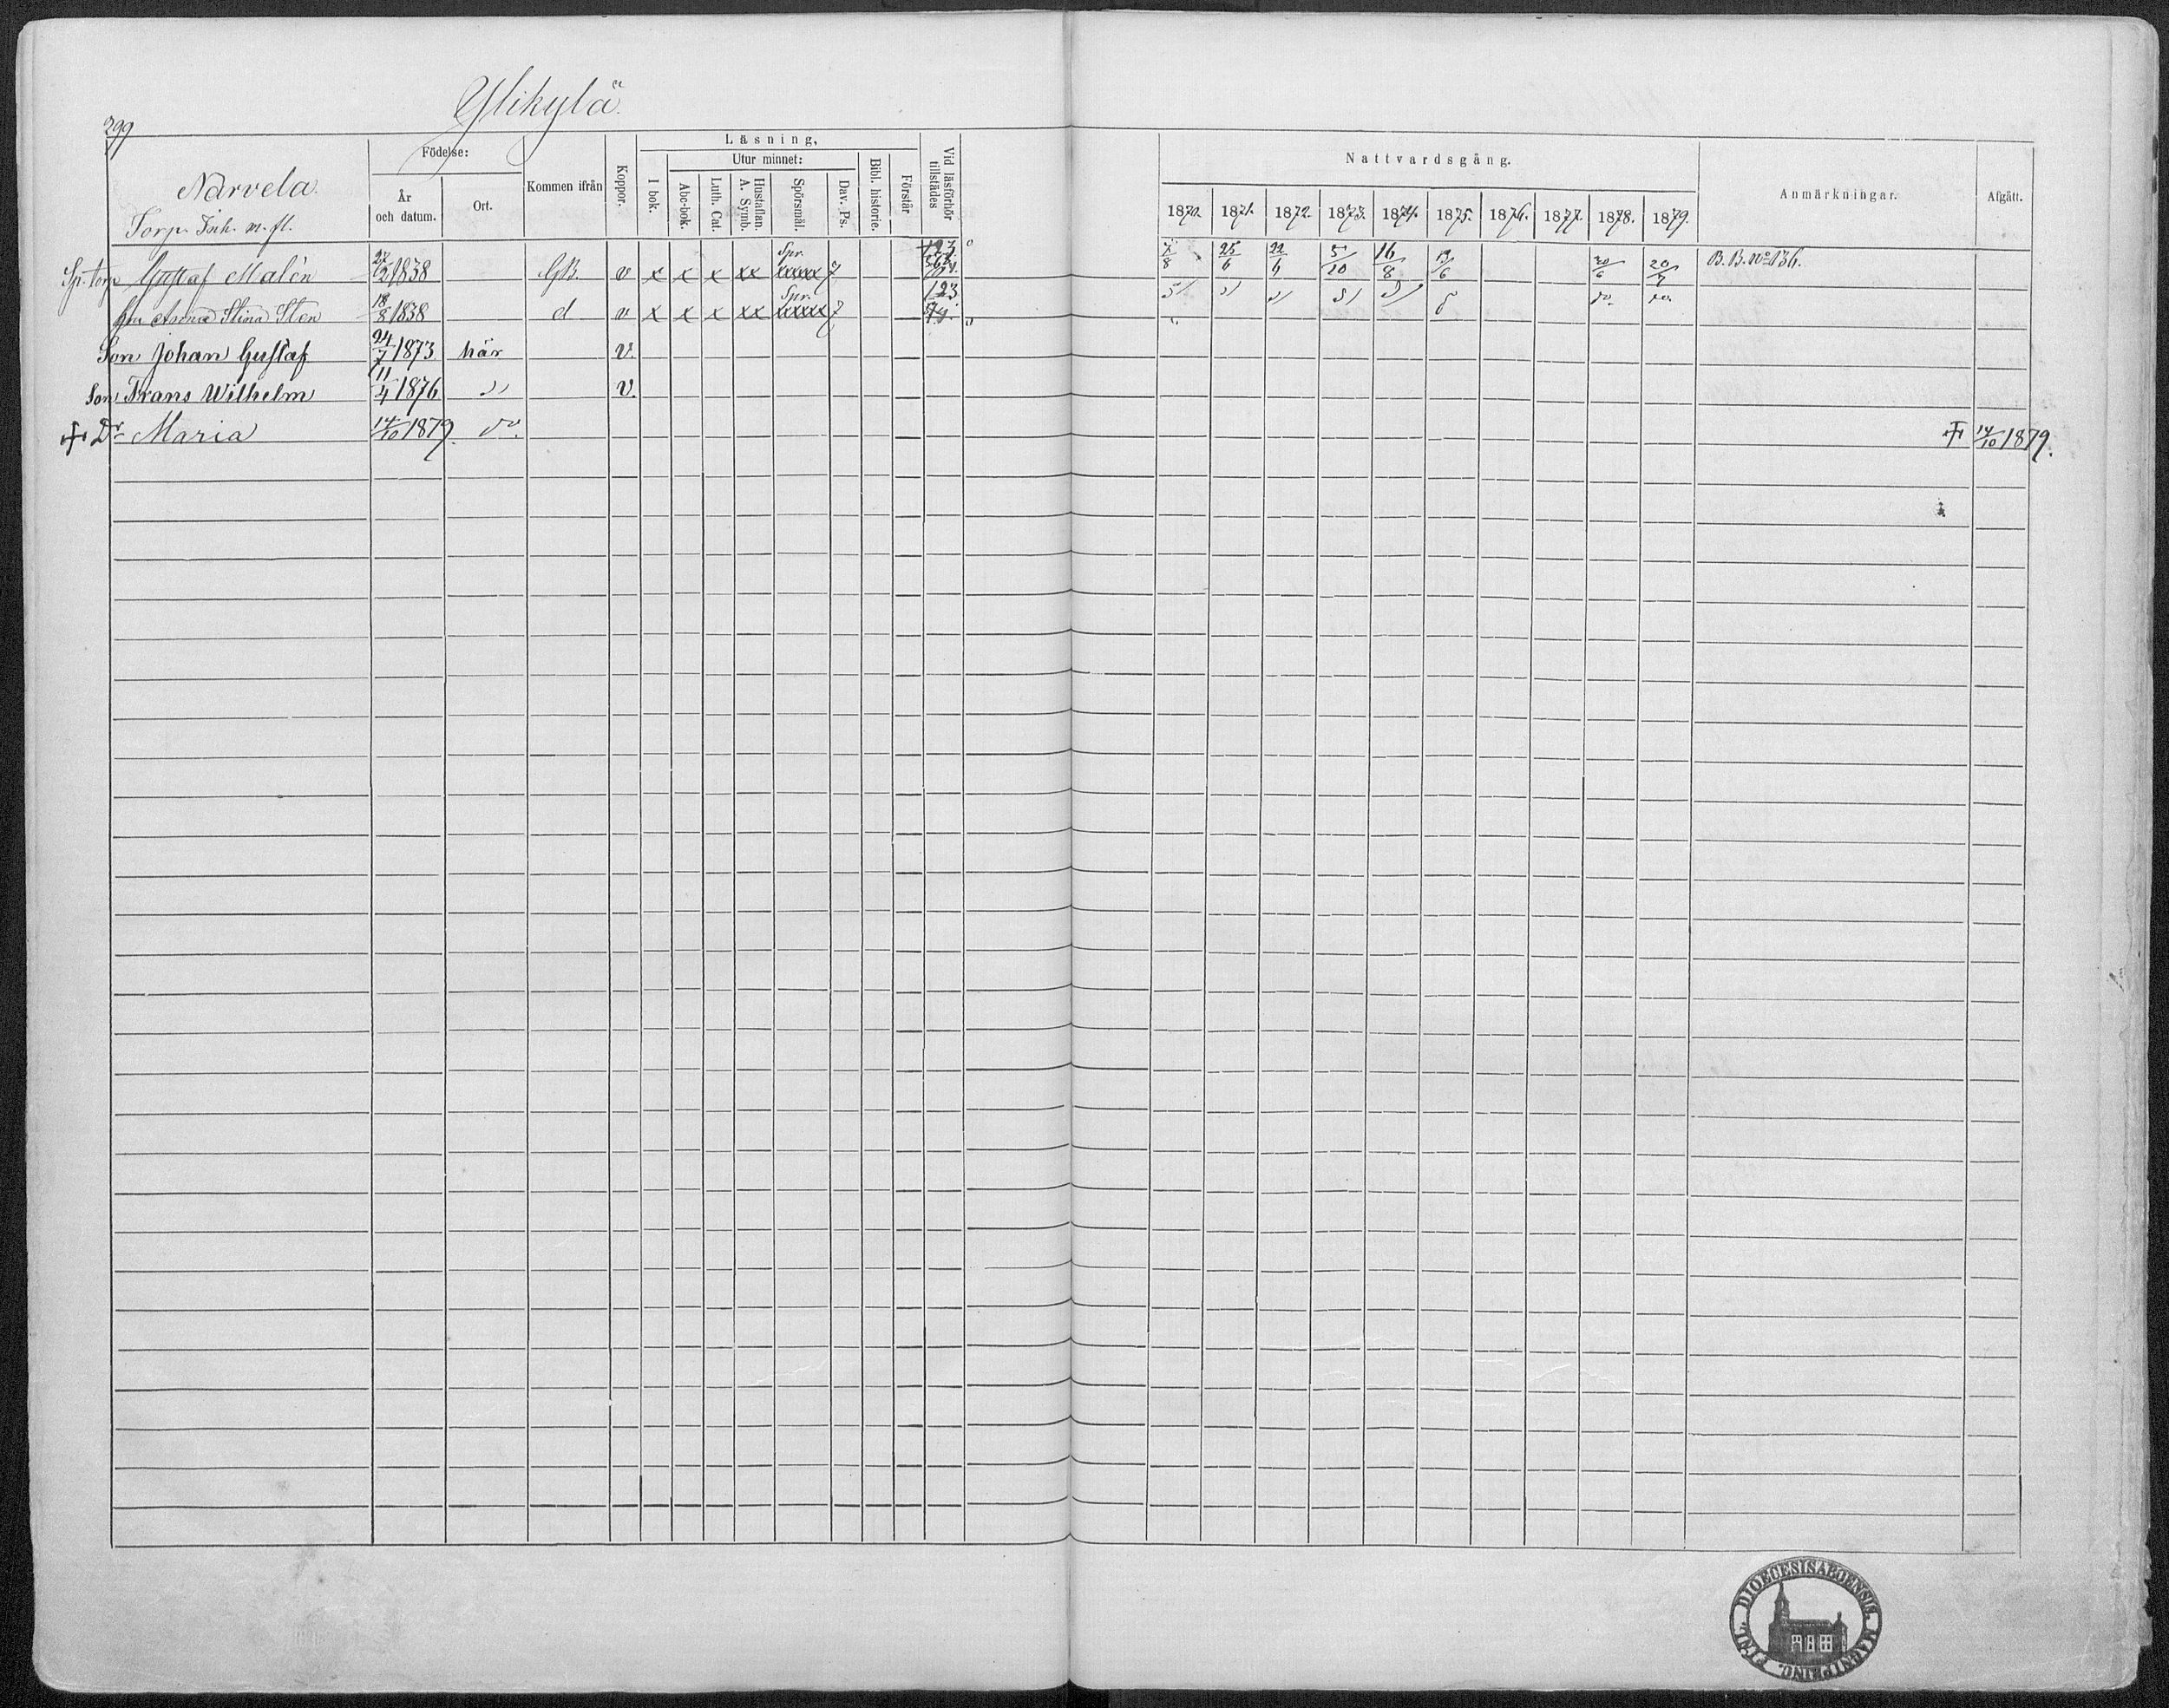 299
Ylikylä
Narvela
Torp. Inh. m. fl.
Födelse:
År och datum.
Ort.
Kommen ifrån
Koppor.
Läsning,
I bok.
Utur minnet:
Abc-bok.
Luth. Cat.
Hustaflan. A. Symb.
Spörsmål.
Dav. Ps.
Bibl. historie.
Förstår
Vid läsförhör tillstädes
Nattvardsgång.
1870. 1871. 1872. 1873. 1874. 1875. 1876. 1877. 1878. 1879.
Anmärkningar.
Afgått.
Sp. torp Gustaf Malén 1838 GB. v x x x xx Spr. xxxxx 7 7/8 25/6 22/6 5/10 16/8 13/6 20/6 B. B. No 136.
hu Anna Stina Sten 18/8 1838 d v x x x xx Spr. xxxxx 7 123 do. do.
Son Johan Gustaf 24/7 1873 här v.
Son Frans Wilhelm 11/4 1876 " v.
† Dr Maria 14/10 1879. do. † 14/10 1879.
FINL. DIOECESIS ABOENSIS. MAGNI PRINC.